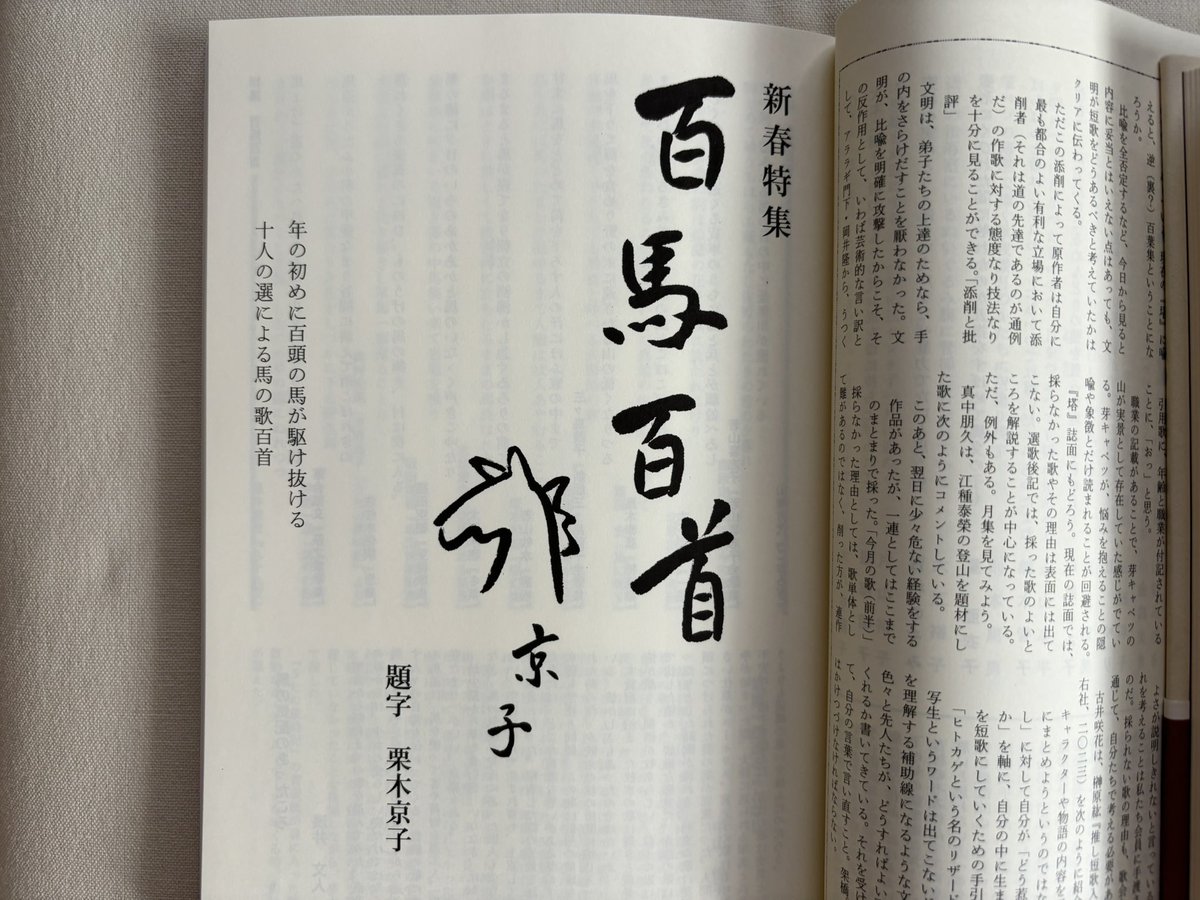 えると、逆（裏？）百葉集ということにな
ろうか。
比喩を全否定するなど、今日から見ると
内容に妥当とはいえない点はあっても、文
明が短歌をどうあるべきと考えていたかは
クリアに伝わってくる。
ただこの添削によって原作者は自分に
最も都合のよい有利な立場において添
削者（それは道の先達であるのが通例
だ）の作歌に対する態度なり技法なり
を十分に見ることができる。「添削と批
評」
文明は、弟子たちの上達のためなら、手
の内をさらけだすことを厭わなかった。文
明が、比喩を明確に攻撃したからこそ、そ
の反作用として、いわば芸術的な言い訳と
して、アララギ門下・岡井隆から、うつく
引用歌に、年齢と職業が付記されている
ことに、「おっ」と思う。
職業の記載があることで、芽キャベツの
山が実景として存在していた感じがでてい
る。芽キャベツが、悩みを抱えることの隠
喩や象徴とだけ読まれることが回避される。
『塔』誌面にもどろう。現在の誌面では、
採らなかった歌やその理由は表面には出て
こない。選歌後記では、採った歌のよいと
ころを解説することが中心になっている。
ただ、例外もある。月集を見てみよう。
真中朋久は、江種泰榮の登山を題材にし
た歌に次のようにコメントしている。
このあと、翌日に少々危ない経験をする
作品があったが、一連としてはここまで
のまとまりで採った。「今月の歌（前半）」
採らなかった理由としては、歌単体とし
て難があるのではなく、削った方が、連作
よさが説明しきれないと言っている
れを考えることは私たち会員に手渡
のだ。採られない歌の理由も、歌会
通じて、自分たちで考える必要があ
古井咲花は、榊原紘『推し短歌入
右社、二〇二三）を次のように紹
キャラクターや物語の内容を
にまとめようというのではな
し」に対して自分が「どう惹
か」を軸に、自分の中に生ま
を短歌にしていくための手引
「ヒトカゲという名のリザード
写生というワードは出てこない
を理解する補助線になるような文
色々と先人たちが、どうすればよい
くれるか書いてきている。それを受け
て、自分の言葉で言い直すこと。架橋
はかけつづけなければならない。
新春特集
百馬百首
京子
題字　栗木京子
年の初めに百頭の馬が駆け抜ける
十人の選による馬の歌百首